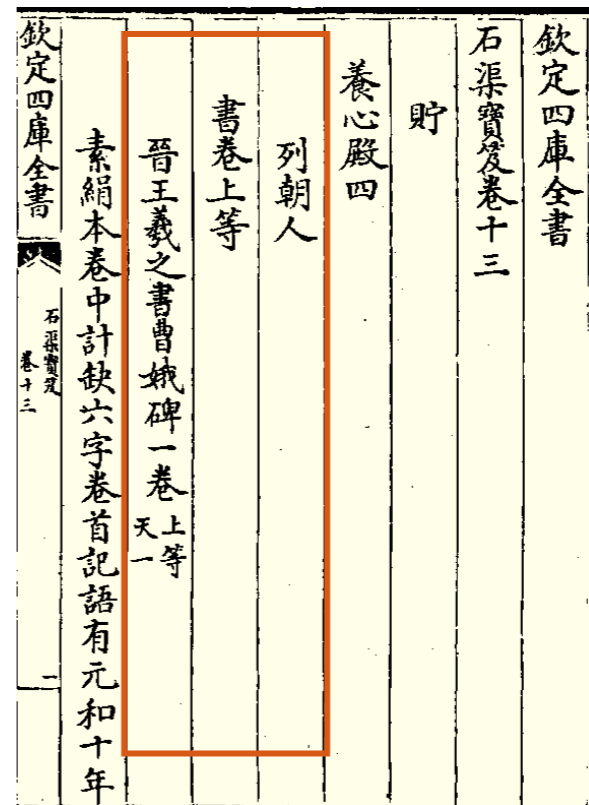 欽定四庫全書
石渠寶笈卷十三
貯
養心殿四
列朝人
書卷上等
晉王羲之書曹娥碑一卷 上等
天一
素絹本卷中計缺六字卷首記語有元和十年
欽定四庫全書
石渠寶笈
卷十三
一